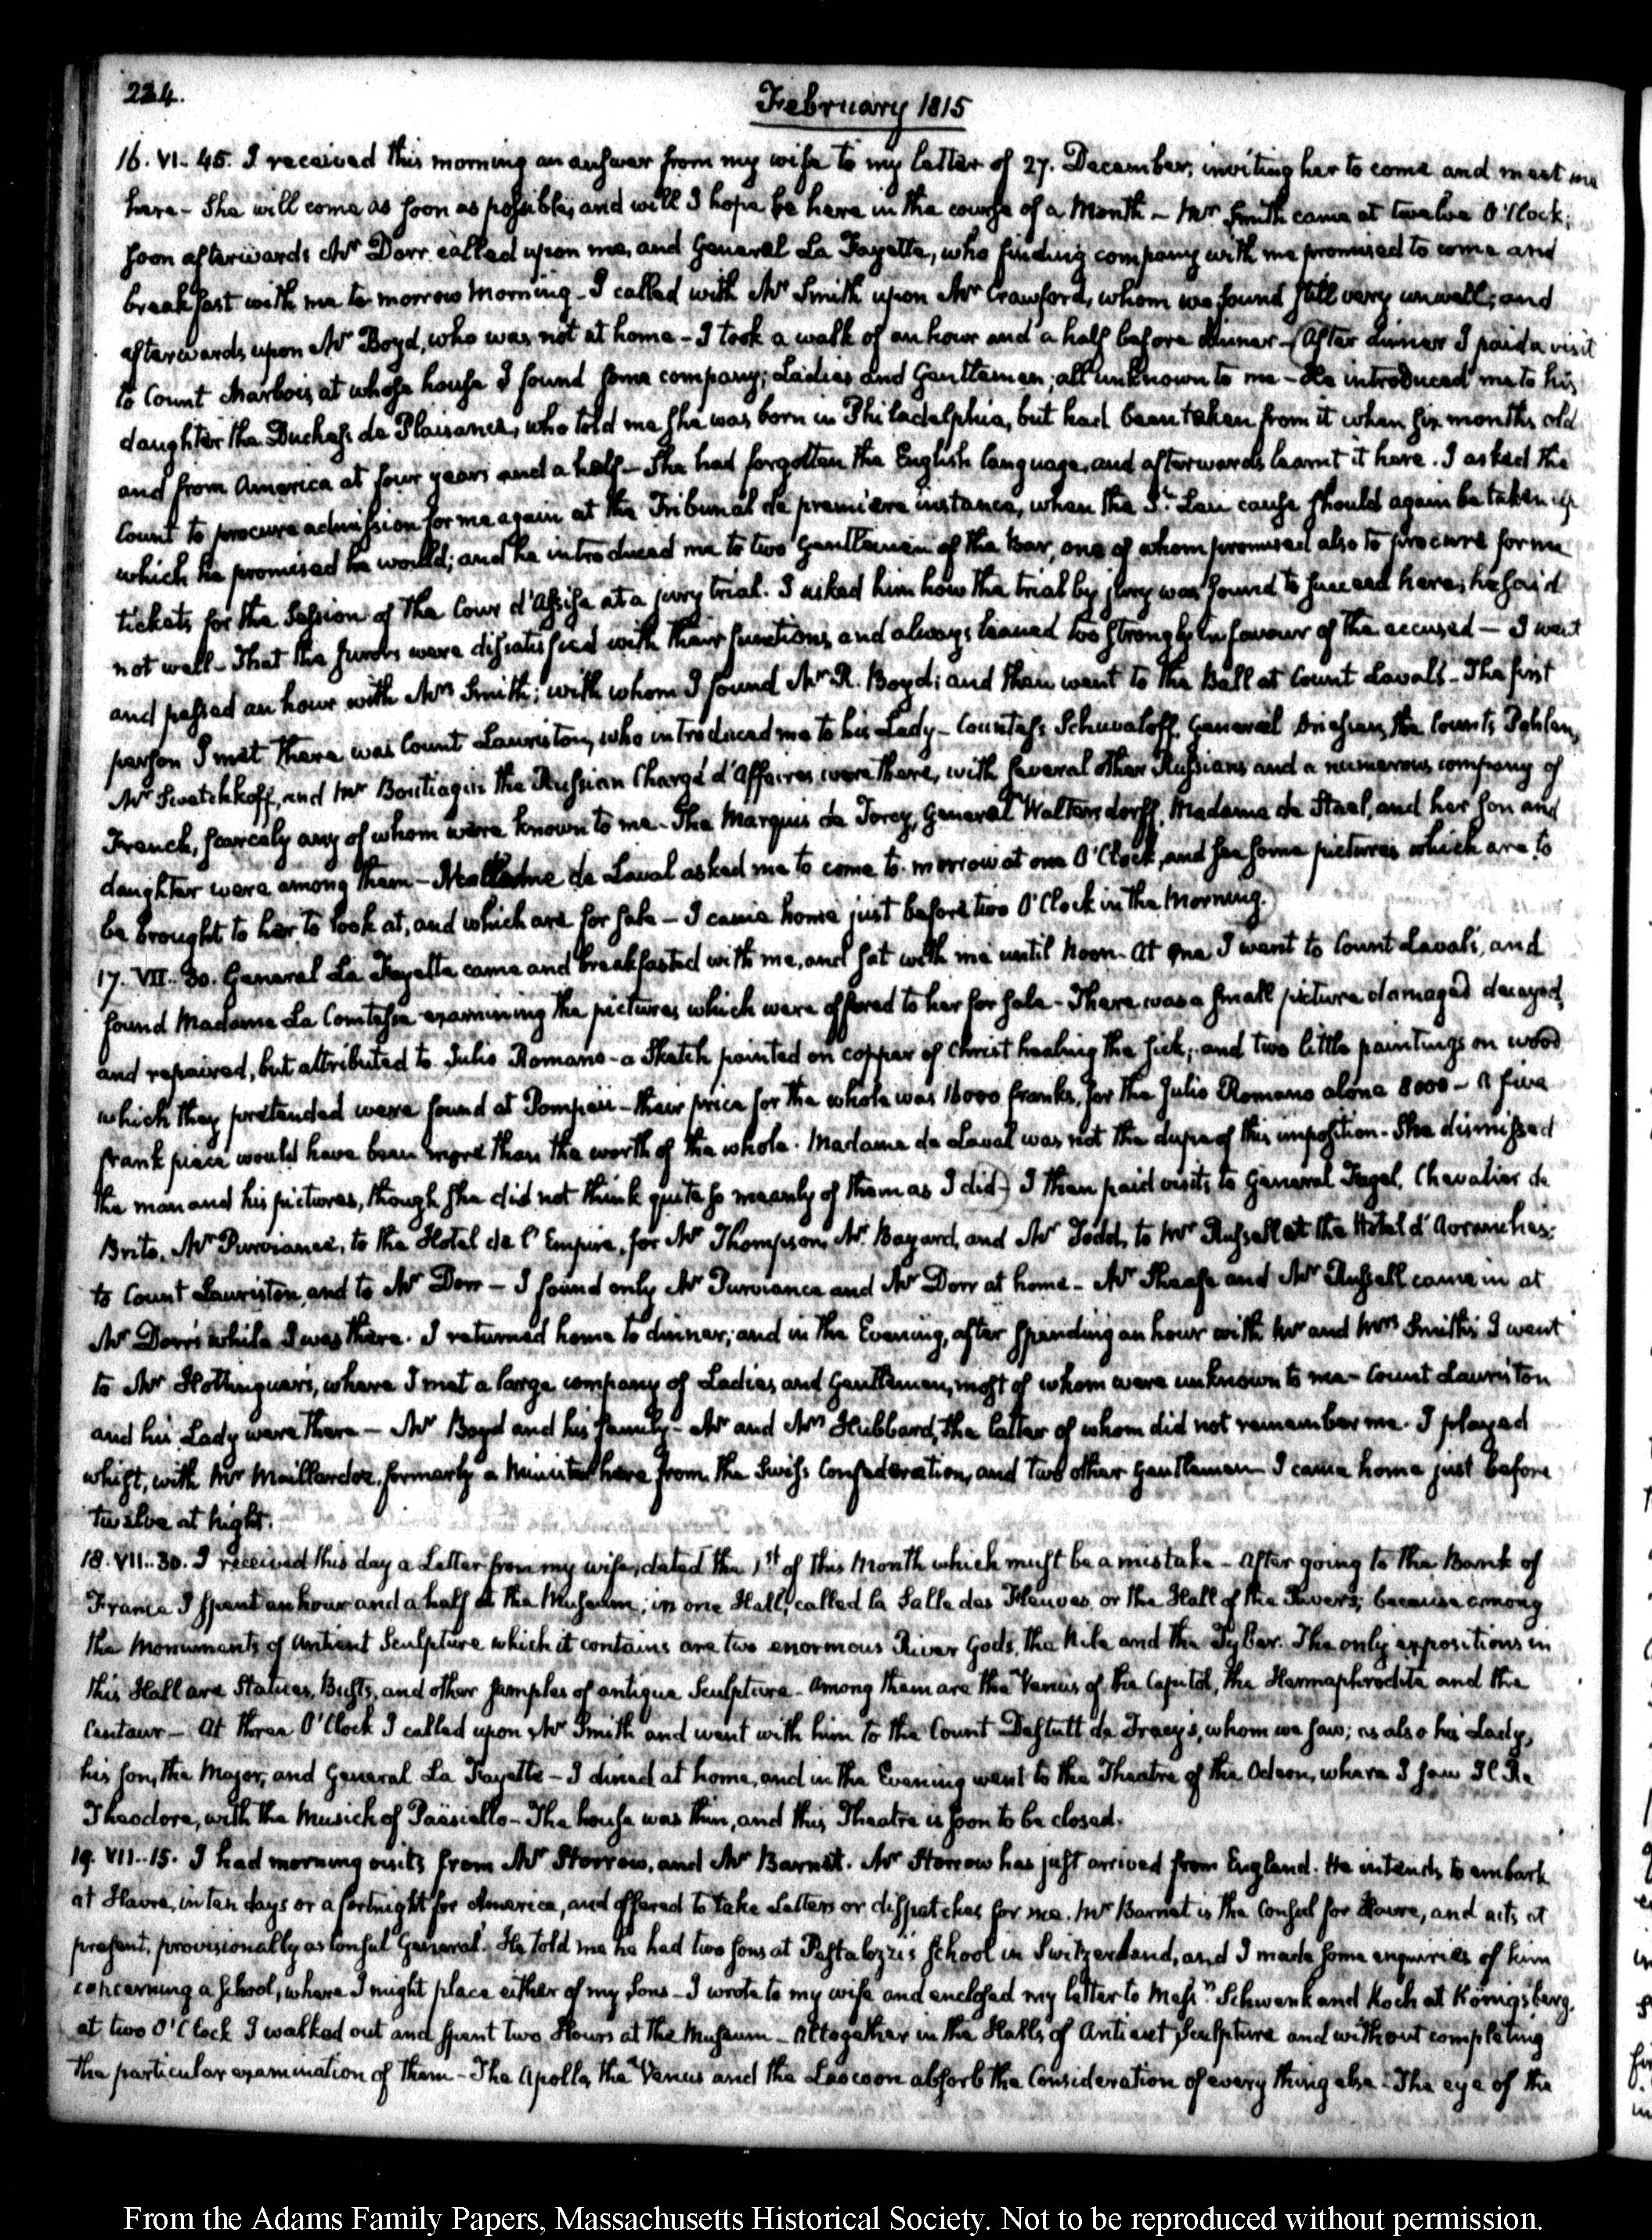 224.
February 1815
16. VI. 45. I received this morning an answer from my wife to my letter of 27. December, inviting her to come and meet me
here - She will come as soon as possible, and will I hope be here in the course of a Month - Mr Smith came at twelve O'Clock;
soon afterwards Mr Dorr called upon me, and General La Fayette, who finding company with me promised to come and
breakfast with me to-morrow Morning - I called with Mr Smith upon Mr Crawford, whom we found still very unwell; and
afterwards upon Mr Boyd, who was not at home - I took a walk of an hour and a half before dinner - (After dinner I paid a visit
to Count Marbois, at whose house I found some company; Ladies and Gentlemen, all unknown to me - He introduced me to his
daughter the Duchess de Plaisance, who told me she was born in Philadelphia, but had been taken from it when six months old
and from America at four years and a half - She had forgotten the English language, and afterwards learnt it here. I asked the
Count to procure admission for me again at the Tribunal de premiere instance, when the St. Leu cause should again be taken up
which he promised he would; and he introduced me to two Gentlemen of the Bar, one of whom promised also to procure for me
tickets for the Session of the Cour d'Assise at a jury trial. I asked him how the trial by jury was found to succeed here; he said
not well - That the Jurors were dissatisfied with their functions, and always leaned too strongly in favour of the accused - I went
and passed an hour with Mrs Smith; with whom I found Mr R. Boyd; and then went to the Ball at Count Laval's - The first
person I met there was Count Lauriston, who introduced me to his Lady - Countess Schuvaloff, General the Counts Pahlen,
Mr Swetchkoff, and Mr Boutiagin the Russian Chargé d'Affaires were there, with several other Russians and a numerous company of
French, scarcely any of whom were known to me - The Marquis de Torcy, General Walterstorff, Madame de Stael, and her son and
daughter were among them - Madame de Laval asked me to come to-morrow at one O'Clock, and see some pictures which are to
be brought to her to look at, and which are for sale - I came home just before two O'Clock in the Morning.
17. VII. 30. General La Fayette came and breakfasted with me, and sat with me until Noon. At one I went to Count Laval's, and
found Madame La Comtesse examining the pictures which were offered to her for sale - There was a small picture damaged decayed,
and repaired, but attributed to Julio Romano - a Sketch painted on copper of Christ healing the sick; and two little paintings on wood
which they pretended were found at Pompeii - their price for the whole was 16000 franks, for the Julio Romano alone 8000 - A five
frank piece would have been more than the worth of the whole. Madame de Laval was not the dupe of this imposition - She dismissed
the man and his pictures, though she did not think quite so meanly of them as I did) I then paid visits to General Fagel, Chevalier de
Brito, Mr Purviance, to the Hotel de l'Empire, for Mr Thompson, Mr. Bayard, and Mr Todd, to Mr Russell at the Hotel d'Avranches:
to Count Lauriston, and to Mr Dorr - I found only Mr Purviance and Mr Dorr at home - Mr Sheafe and Mr Russell came in at
Mr Dorr's while I was there. I returned home to dinner; and in the Evening, after spending an hour with Mr and Mrs Smith, I went
to Mr Hottinguer's, where I met a large company of Ladies and Gentlemen, most of whom were unknown to me - Count Lauriston
and his Lady were there - Mr Boyd and his family - Mr and Mrs Hubbard, the latter of whom did not remember me. I played
whist, with Mr Maillardoz, formerly a Minister here from the Swiss Confederation, and two other Gentlemen - I came home just before
twelve at Night.
18. VII. 30. I received this day a Letter from my wife, dated the 1st of this Month which must be a mistake - After going to the Bank of
France I spent an hour and a half at the Museum; in one Hall, called la Salle des Fleuves, or the Hall of the Rivers; because among
the Monuments of Antient Sculpture which it contains are two enormous River Gods, the Nile and the Tyber. The only expositions in
this Hall are Statues, Busts, and other samples of antique Sculpture - Among them are the Venus of the Capitol, the Hermaphrodite and the
Centaur - At three O'Clock I called upon Mr Smith and went with him to the Count Destutt de Tracy's, whom we saw; as also his Lady,
his son, the Major, and General La Fayette - I dined at home, and in the Evening went to the Theatre of the Odeon, where I saw Il Re
Theodore, with the Musick of Paësiello - The house was thin, and this Theatre is soon to be closed.
19. VII. 15. I had morning visits from Mr Storrow, and Mr Barnet. Mr Storrow has just arrived from England. He intends to embark
at Havre, in ten days or a fortnight for America, and offered to take Letters or dispatches for me. Mr Barnet is the Consul for Havre, and acts at
present, provisionally as Consul General. He told me he had two sons at Pestalozzi's school in Switzerland, and I made some enquiries of him
concerning a school, where I might place either of my Sons - I wrote to my wife and enclosed my letter to Messrs. Schwenk and Koch at Königsberg.
at two O'Clock I walked out and spent two Hours at the Museum - Altogether in the Halls of Antient Sculpture and without completing
the particular examination of them - The Apollo, the Venus and the Laocoon absorb the Consideration of every thing else - The eye of the
From the Adams Family Papers, Massachusetts Historical Society. Not to be reproduced without permission.